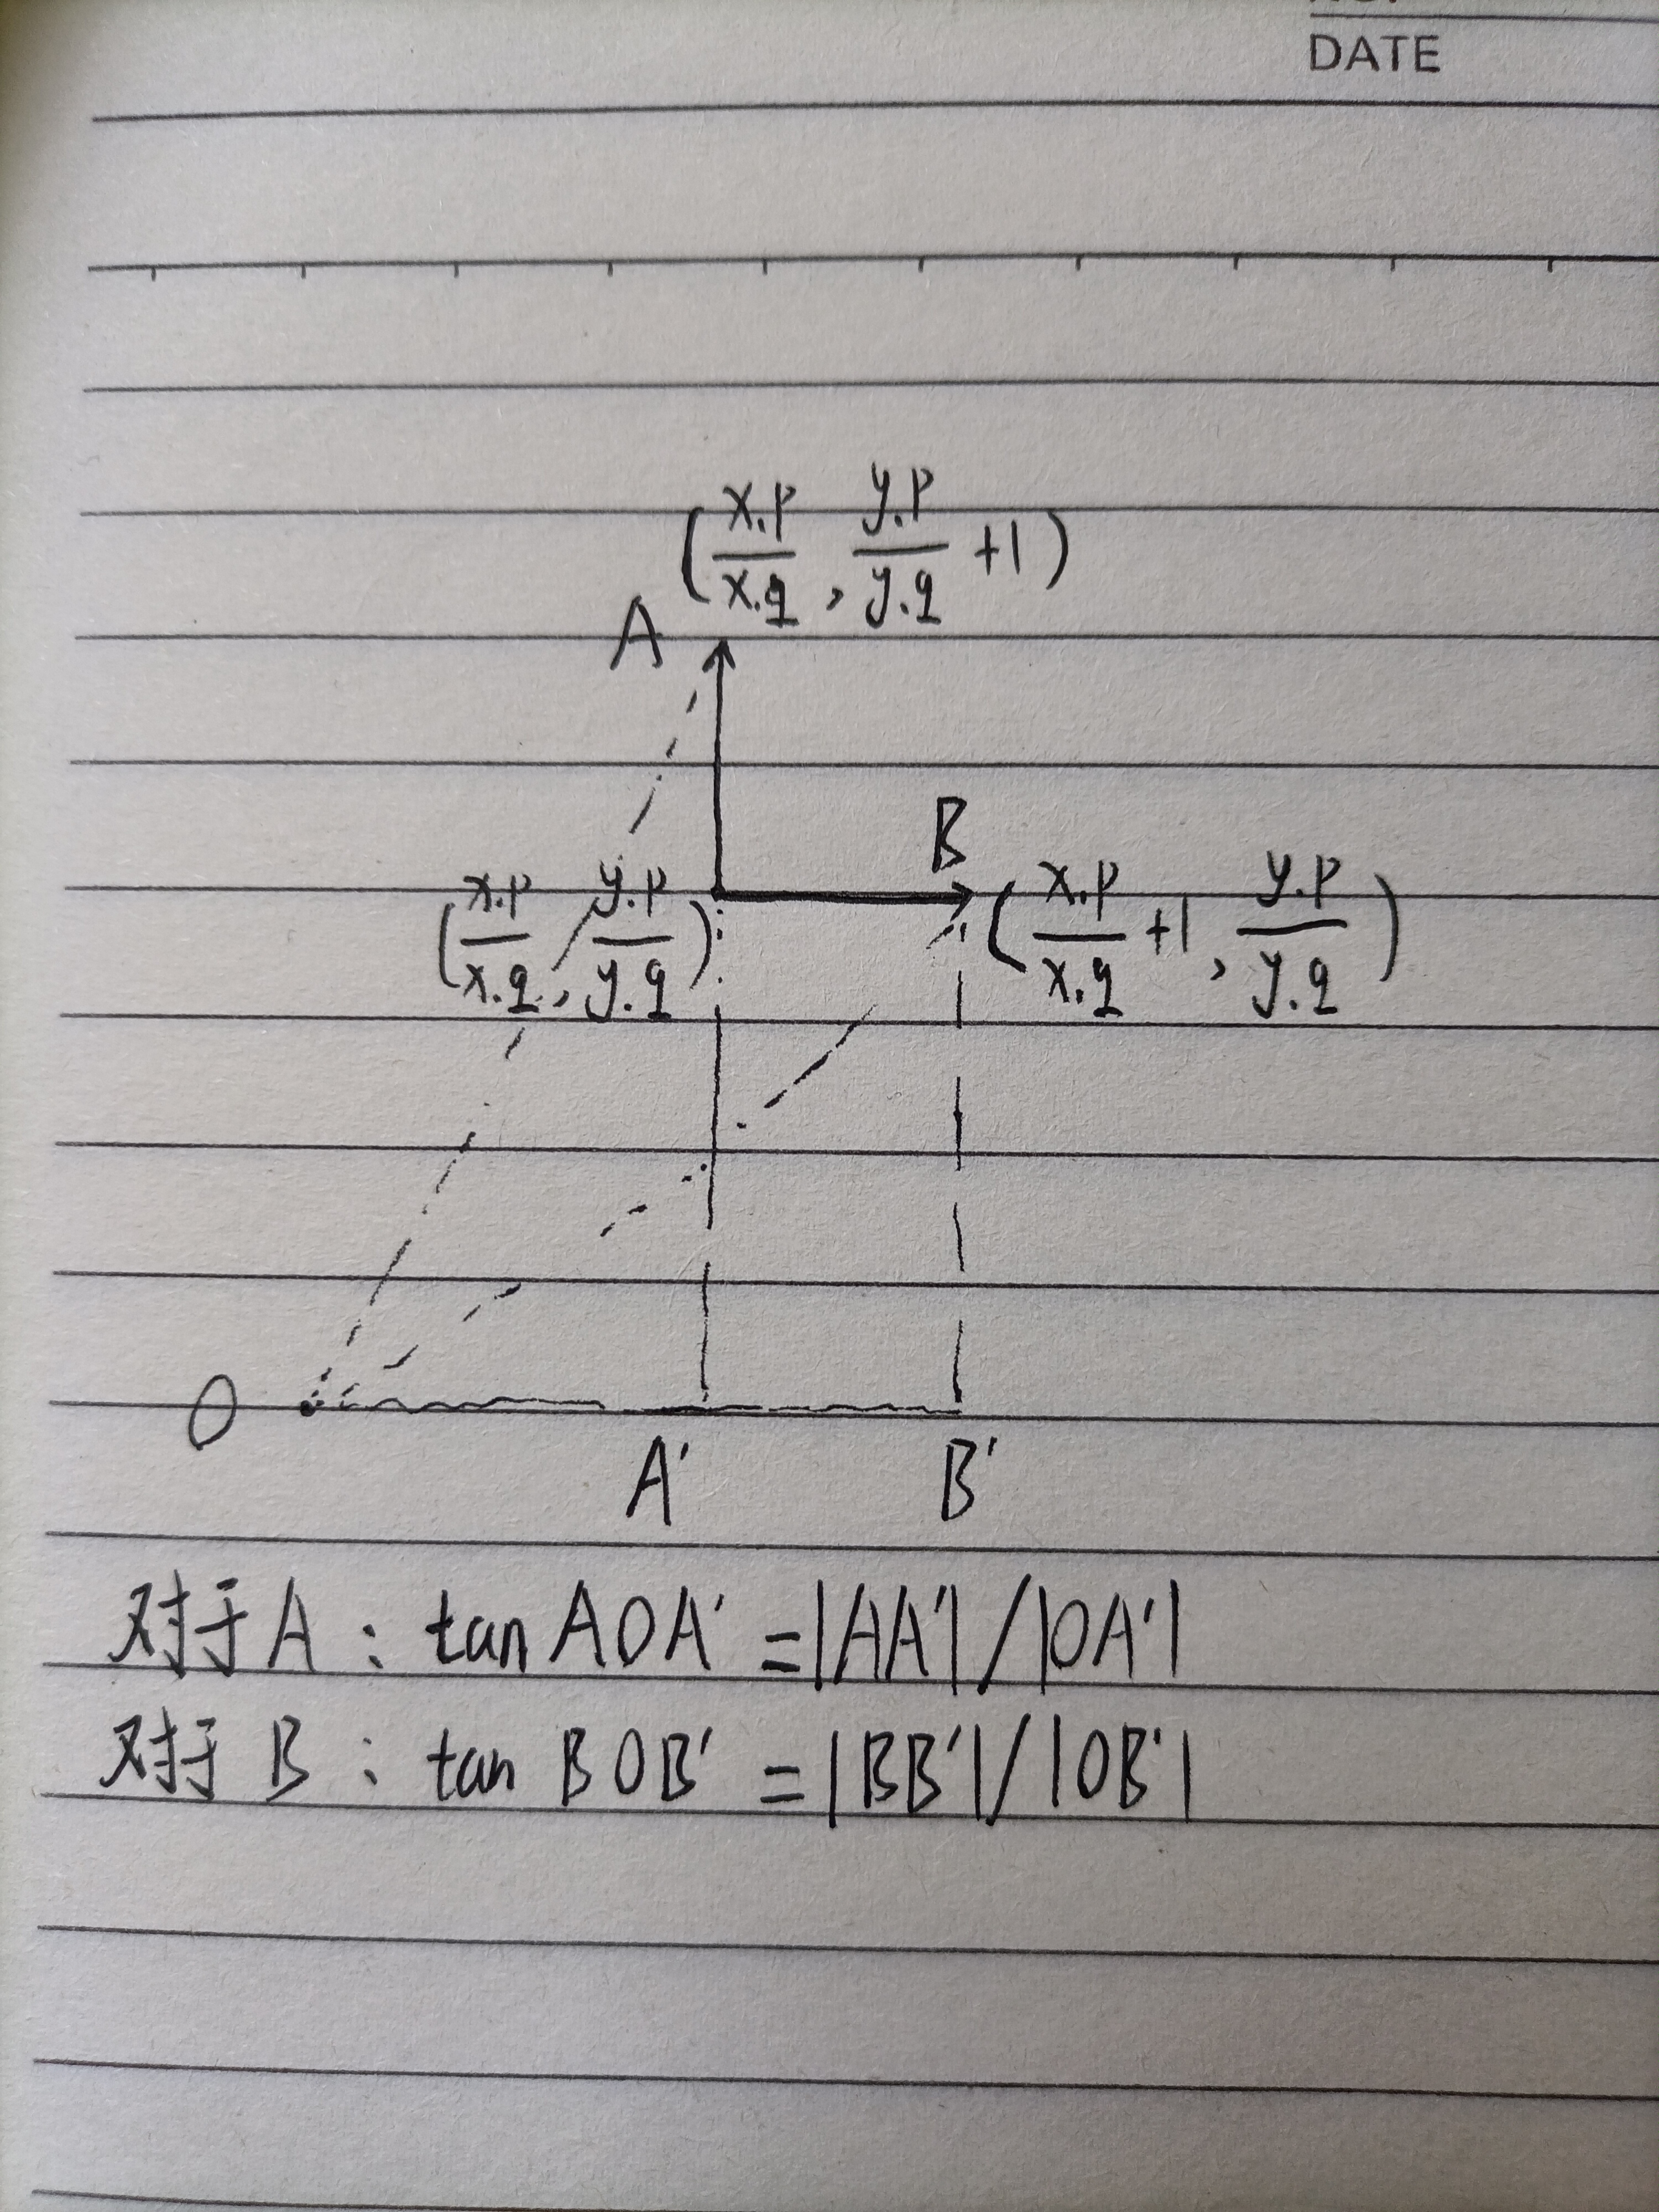 DATE
(x.p/x.q, y.p/y.q +1)
A
B
(x.p/x.q, y.p/y.q)
(x.p/x.q +1, y.p/y.q)
O
A' B'
对于A: tan AOA' = |AA'| / |OA'|
对于 B: tan BOB' = |BB'| / |OB'|